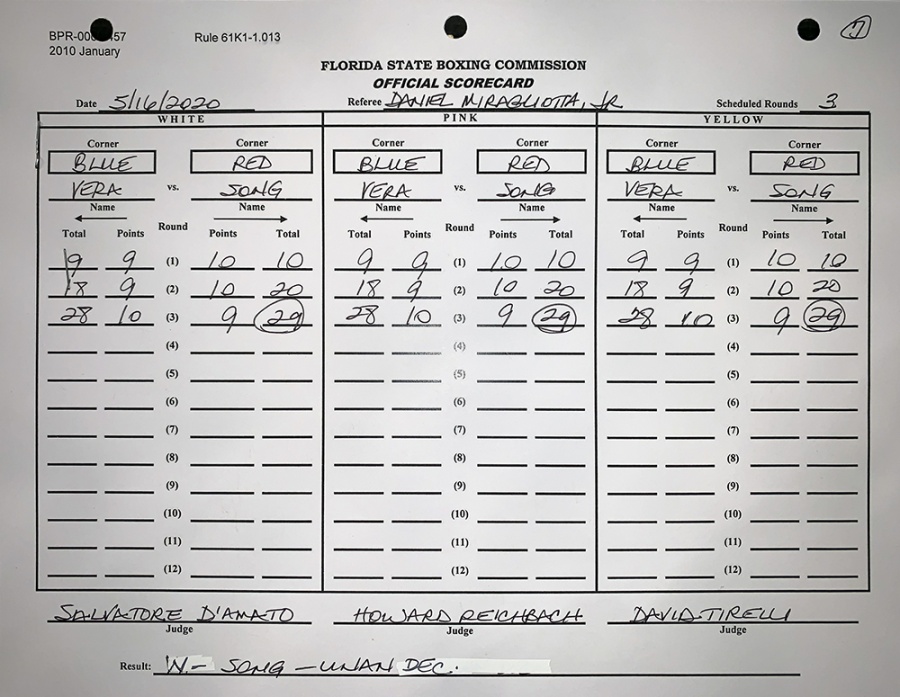 BPR-00 457 Rule 61K1-1.013 7
2010 January
FLORIDA STATE BOXING COMMISSION
OFFICIAL SCORECARD
Date 5/16/2020 Referee DANIEL MIRAGLIOTTA, JR Scheduled Rounds 3
WHITE PINK YELLOW
Corner Corner Corner Corner Corner Corner
BLUE RED BLUE RED BLUE RED
VERA vs. SONG VERA vs. SONG VERA vs. SONG
Name Name Name Name Name Name
Total Points Round Points Total Total Points Round Points Total Total Points Round Points Total
9 9 (1) 10 10 9 9 (1) 10 10 9 9 (1) 10 10
18 9 (2) 10 20 18 9 (2) 10 20 18 9 (2) 10 20
28 10 (3) 9 29 28 10 (3) 9 29 28 10 (3) 9 29
(4) (4) (4)
(5) (5) (5)
(6) (6) (6)
(7) (7) (7)
(8) (8) (8)
(9) (9) (9)
(10) (10) (10)
(11) (11) (11)
(12) (12) (12)
SALVATORE D'AMATO HOWARD REICHBACH DAVID TIRELLI
Judge Judge Judge
Result: W- SONG - UNAN DEC.